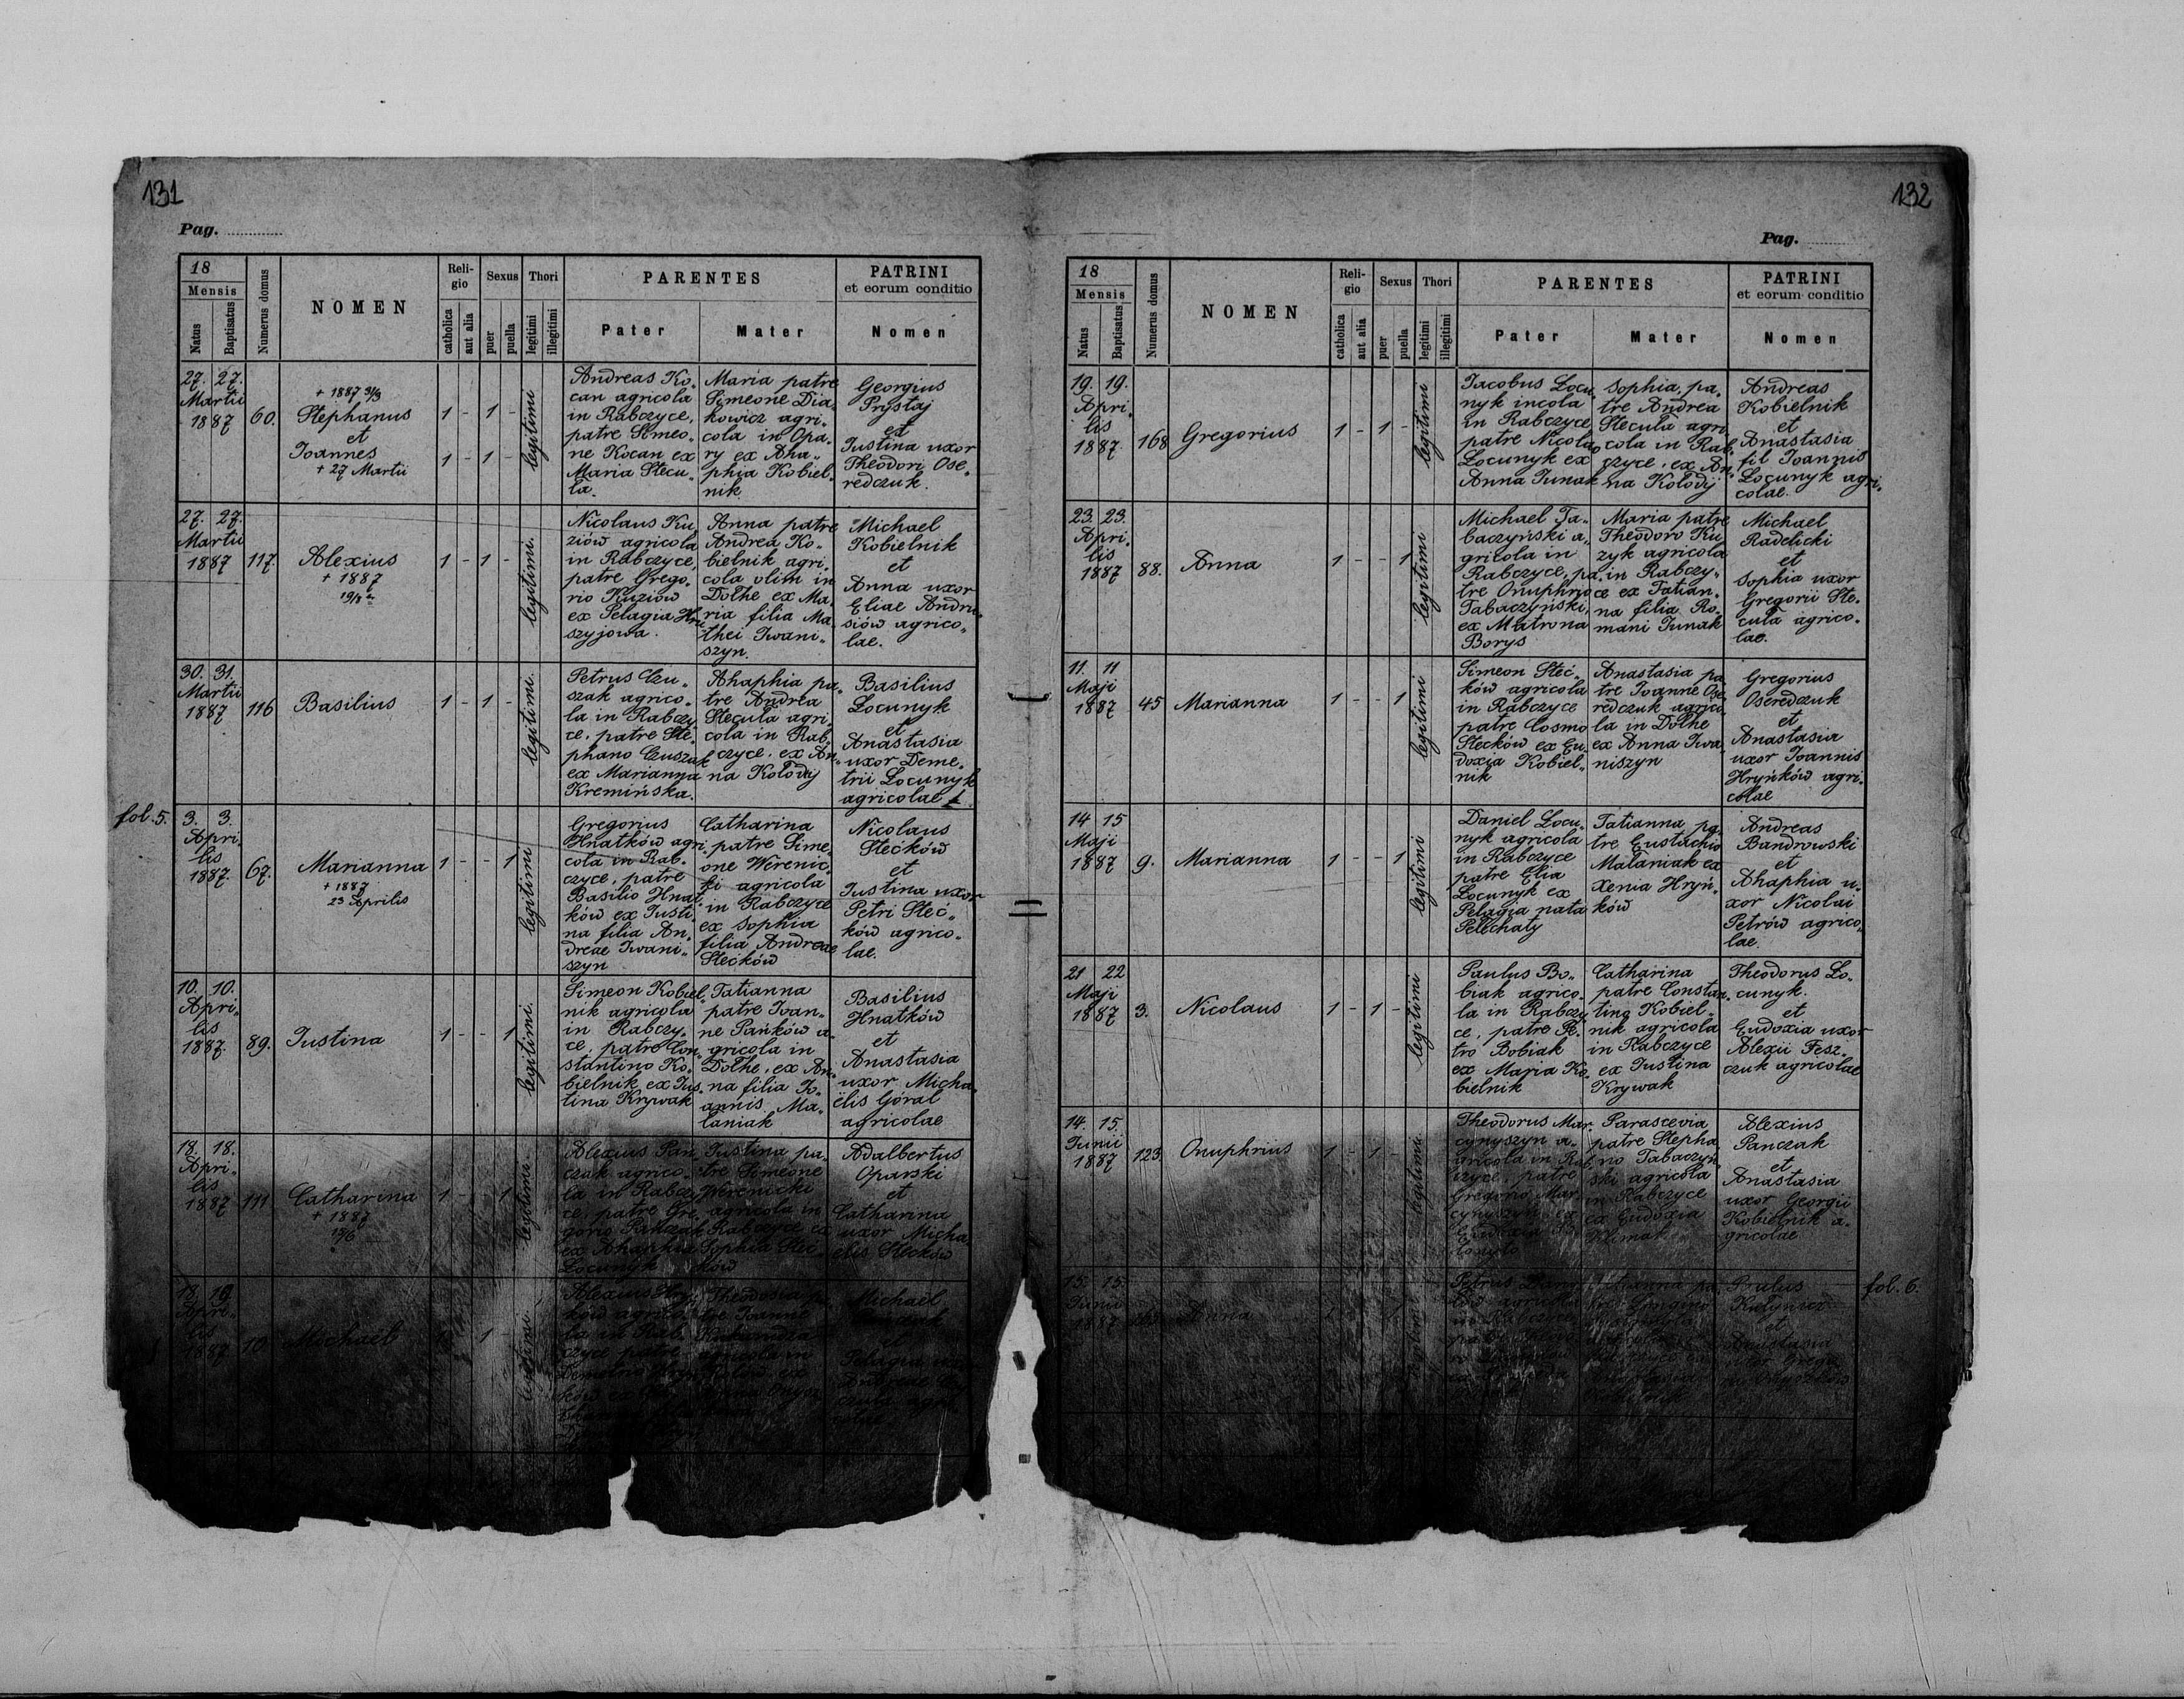 131
Pag.
18
Mensis
Natus
Baptisatus
Numerus domus
NOMEN
Reli-
gio
catholica
aut alia
Sexus
puer
puella
Thori
legitimi
illegitimi
PARENTES
Pater
Mater
PATRINI
et eorum conditio
Nomen
27. 27.
Martii
1887
60.
+ 1887 31/3
Stephanus
et
Joannes
+ 27 Martii
1 - 1 -
1 - 1 -
legitimi
Andreas Ko„
can agricola
in Rabczyce,
patre Simeo„
ne Kocan ex
Maria Stecu„
ła.
Maria patre
Simeone Dia„
kowicz agri„
cola in Opa„
ry ex Aha„
phia Kobiel„
nik
Georgius
Prystaj
et
Justina uxor
Theodori Ose„
redczuk.
27. 27.
Martii
1887
117.
Alexius
+ 1887
1 - 1 -
legitimi.
Nicolaus Ku„
ziów agricola
in Rabczyce,
patre Grego„
rio Kuziów
ex Pelagia Hry
szyjowa.
Anna patre
Andrea Ko„
bielnik agri„
cola olim in
Dołhe ex Ma„
ria filia Ma„
thei Iwani„
szyn.
Michael
Kobielnik
et
Anna uxor
Eliae Andru„
siów agrico„
lae.
30. 31.
Martii
1887
116
Basilius
1 - 1 -
legitimi.
Petrus Czu„
szak agrico„
la in Rabczy„
ce, patre Ste„
phano Czuszak
ex Marianna
Kremińska.
Ahaphia pa„
tre Andrea
Stecuła agri„
cola in Rab„
czyce, ex An„
na Kołodij
Basilius
Łocunyk
et
Anastasia
uxor Deme„
trii Łocunyk
agricolae
fol. 5.
3. 3.
Apri„
lis
1887.
67.
Marianna
+ 1887
23 Aprilis
1 - - 1
legitimi
Gregorius
Hnatków agri„
cola in Rab„
czyce, patre
Basilio Hnat„
ków ex Justi„
na filia An„
dreae Iwani„
szyn
Catharina
patre Sime„
one Werenic„
ki agricola
in Rabczyce
ex Sophia
filia Andreae
Stećków
Nicolaus
Stećków
et
Justina uxor
Petri Steć„
ków agrico„
lae.
10. 10.
Apri„
lis
1887.
89.
Justina
1 - - 1
legitimi.
Simeon Kobiel„
nik agricola
in Rabczy„
ce, patre Con„
stantino Ko„
bielnik ex Jus„
tina Krywak
Tatianna
patre Joan„
ne Pańków a„
gricola in
Dołhe, ex An„
na filia Jo„
annis Ma„
łaniak
Basilius
Hnatków
et
Anastasia
uxor Micha„
ëlis Góral
agricolae
18. 18.
Apri„
lis
1887
111
Catharina
+ 1887
1 - - 1
legitimi.
Alexius Pan„
czak agrico„
la in Rabczy„
ce, patre Gre„
gorio Panczak
ex Ahaphia
Łocunyk
Justina pa„
tre Simeone
Werenicki
agricola in
Rabczyce ex
Sophia Steć„
ków
Adalbertus
Oparski
et
Catharina
uxor Micha„
elis Stećków
18. 19.
Apri„
lis
1887
10
Michaël
1
Alexius
agrico„
la in Rab„
czyce patre
Theodosia pa„
tre Joanne
agricola in
Michael
et
Pelagia
132
Pag.
18
Mensis
Natus
Baptisatus
Numerus domus
NOMEN
Reli-
gio
catholica
aut alia
Sexus
puer
puella
Thori
legitimi
illegitimi
PARENTES
Pater
Mater
PATRINI
et eorum conditio
Nomen
19. 19.
Apri„
lis
1887
168
Gregorius
1 - 1 -
legitimi
Jacobus Łocu„
nyk incola
in Rabczyce
patre Nicolao
Łocunyk ex
Anna Junak
Sophia, pa„
tre Andrea
Stecuła agri„
cola in Rab„
czyce, ex An„
na Kołodij
Andreas
Kobielnik
et
Anastasia
fil Joannis
Łocunyk agri„
colae.
23. 23.
Apri„
lis
1887
88.
Anna
1 - - 1
legitimi
Michael Ta„
baczyński a„
gricola in
Rabczyce, pa„
tre Onuphrio
Tabaczyński,
ex Matrona
Borys
Maria patre
Theodoro Ku„
zyk agricola
in Rabczy„
ce ex Tatian„
na filia Ro„
mani Junak
Michael
Radelicki
et
Sophia uxor
Gregorii Ste„
cuła agrico„
lae.
11. 11
Maji
1887
45
Marianna
1 - - 1
legitimi
Simeon Steć„
ków agricola
in Rabczyce
patre Cosmo
Stecków ex Eu„
doxia Kobiel„
nik
Anastasia pa„
tre Joanne Ose„
redczuk agrico„
la in Dołhe
ex Anna Iwa„
niszyn
Gregorius
Oseredczuk
et
Anastasia
uxor Joannis
Hryńków agri„
colae
14 15
Maji
1887
9.
Marianna
1 - - 1
legitimi
Daniel Łocu„
nyk agricola
in Rabczyce
patre Elia
Łocunyk ex
Pelagia nata
Pelechaty
Tatianna pa„
tre Eustachio
Małaniak ex
Xenia Hryń„
ków
Andreas
Bandrowski
et
Ahaphia u„
xor Nicolai
Petrów agrico„
lae.
21 22
Maji
1887
3.
Nicolaus
1 - 1 -
legitimi
Paulus Bo„
biak agrico„
la in Rabczy„
ce, patre Pe„
tro Bobiak
ex Maria Ko„
bielnik
Catharina
patre Constan„
tino Kobiel„
nik agricola
in Rabczyce
ex Justina
Krywak
Theodorus Ło„
cunyk.
et
Eudoxia uxor
Alexii Fesz„
czuk agricolae
14. 15.
Junii
1887
123
Onuphrius
1 - 1 -
legitimi.
Theodorus Mar„
cynyszyn a„
gricola in Rab„
czyce, patre
Gregorio Mar„
cynyszyn ex
Eudoxia
Parascevia
patre Stepha„
no Tabaczyń„
ski agricola
in Rabczyce
ex Eudoxia
Klimak
Alexius
Panczak
et
Anastasia
uxor Georgii
Kobielnik a„
gricolae
fol. 6.
15. 15.
Junii
1887
Anna
Petrus
agricola
in Rabczyce
et
Anastasia